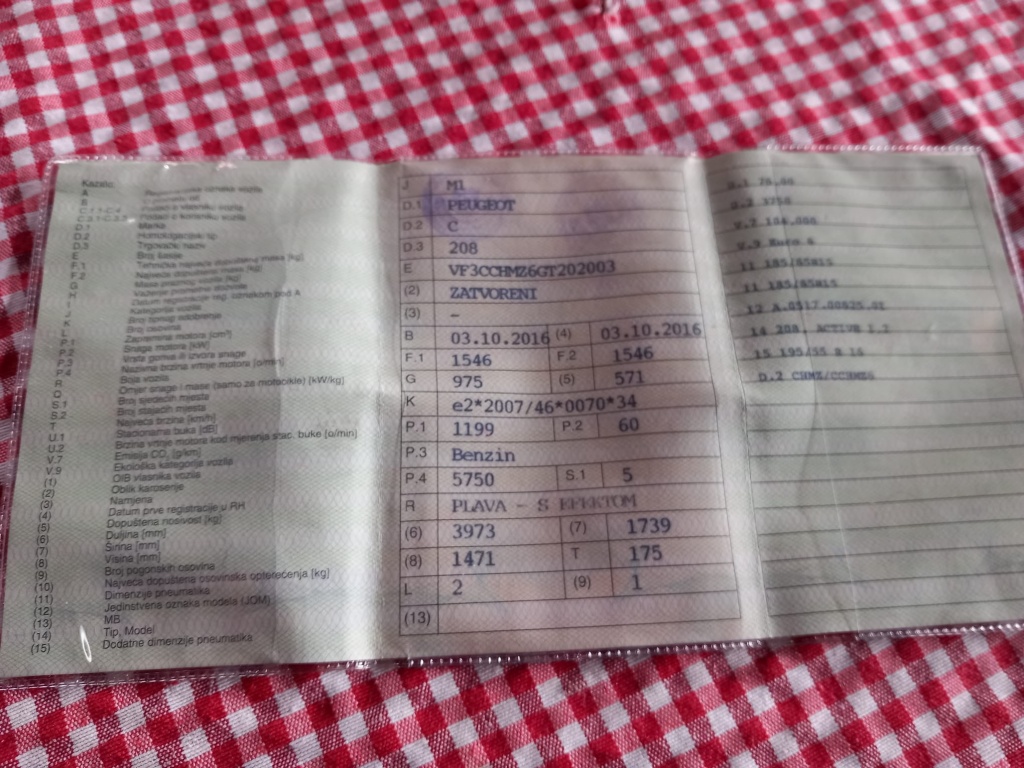 Kazalo:
A Registracijska oznaka vozila
B
C.1.1-C.4 Podaci o vlasniku vozila
C.3.1-C.3.3 Podaci o korisniku vozila
D.1 Marka
D.2 Homologacijski tip
D.3 Trgovački naziv
E Broj šasije
F.1 Tehnička najveća dopuštena masa [kg]
F.2 Najveća dopuštena masa [kg]
G Masa praznog vozila [kg]
H
I Datum registracije reg. oznakom pod A
J Kategorija vozila
K Broj tipnog odobrenja
L Broj osovina
P.1 Zapremina motora [cm³]
P.2 Snaga motora [kW]
P.3 Vrsta goriva ili izvora snage
P.4 Nazivna brzina vrtnje motora [o/min]
R Boja vozila
Q Omjer snage i mase (samo za motocikle) [kW/kg]
S.1 Broj sjedećih mjesta
S.2 Broj stajaćih mjesta
T Najveća brzina [km/h]
U.1 Stacionarna buka [dB]
U.2 Brzina vrtnje motora kod mjerenja stac. buke [o/min]
V.7 Emisija CO₂ [g/km]
V.9 Ekološka kategorija vozila
(1) OIB vlasnika vozila
(2) Oblik karoserije
(3) Namjena
(4) Datum prve registracije u RH
(5) Dopuštena nosivost [kg]
(6) Duljina [mm]
(7) Širina [mm]
(8) Visina [mm]
(9) Broj pogonskih osovina
(10) Najveća dopuštena osovinska opterećenja [kg]
(11) Dimenzije pneumatika
(12) Jedinstvena oznaka modela (JOM)
(13) MB
(14) Tip, Model
(15) Dodatne dimenzije pneumatika
J M1
D.1 PEUGEOT
D.2 C
D.3 208
E VF3CCHMZ6GT202003
(2) ZATVORENI
(3) -
B 03.10.2016 (4) 03.10.2016
F.1 1546 F.2 1546
G 975 (5) 571
K e2*2007/46*0070*34
P.1 1199 P.2 60
P.3 Benzin
P.4 5750 S.1 5
R PLAVA - S EFEKTOM
(6) 3973 (7) 1739
(8) 1471 T 175
L 2 (9) 1
(13)
U.1 76.00
U.2 3750
V.7 104.000
V.9 Euro 6
11 185/65R15
11 185/65R15
12 A.0517.00625.01
14 208, ACTIVE 1.2
15 195/55 R 16
D.2 CHMZ/CCHMZ6